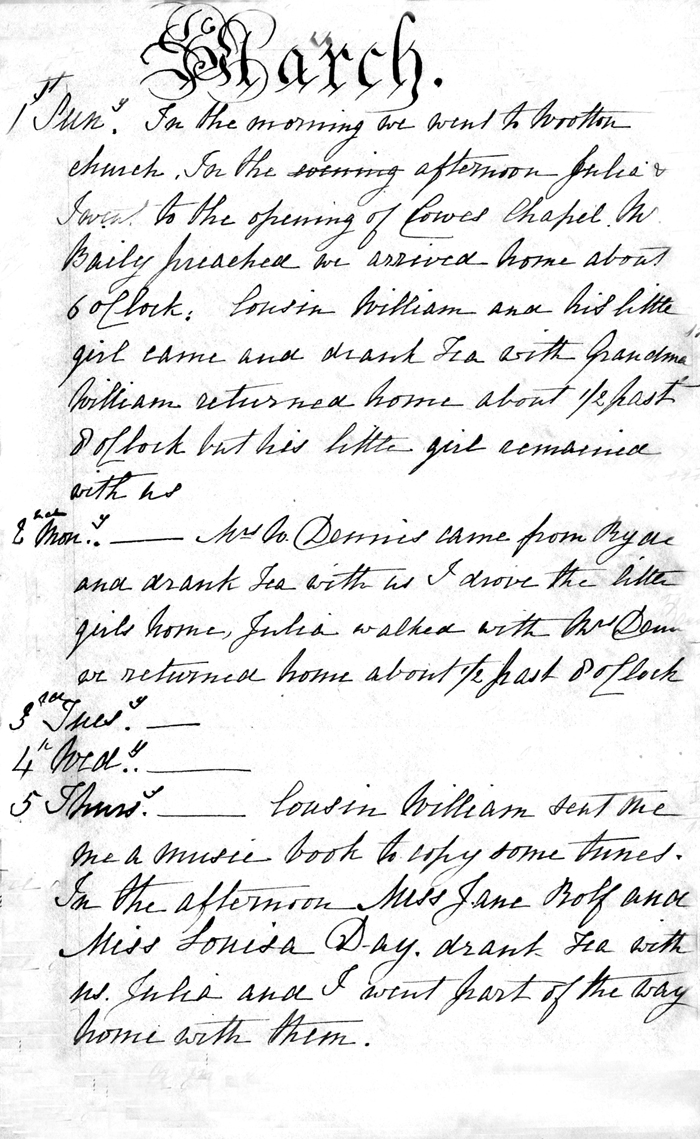 March.
1st Suny. In the morning we went to Wootton
church. In the evening afternoon Julia &
I went to the opening of Cowes Chapel. Mr
Baily preached we arrived home about
6 oClock; Cousin William and his little
girl came and drank Tea with Grandma
William returned home about 1/2 past
8 oClock but his little girl remained
with us
2nd Mony. — Mrs W. Dennis came from Ryde
and drank Tea with us I drove the little
girls home, Julia walked with Mrs Denn
we returned home about 1/2 past 8 oClock
3rd Tuesy. —
4th Wedy. —
5 Thursy. — Cousin William sent me
me a music book to copy some tunes.
In the afternoon Miss Jane Rolf and
Miss Louisa Day. drank Tea with
us. Julia and I went part of the way
home with them.